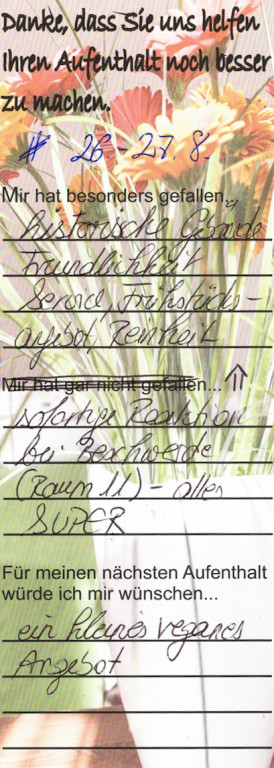 Danke, dass Sie uns helfen
Ihren Aufenthalt noch besser
zu machen.
# 26.-27.8.
Mir hat besonders gefallen...
historische Gebäude
Freundlichkeit
Service, Frühstücks-
angebot, Reinheit
Mir hat gar nicht gefallen... ⇑
sofortige Reaktion
bei Beschwerde
(Raum 11) - alles
SUPER
Für meinen nächsten Aufenthalt
würde ich mir wünschen...
ein kleines veganes
Angebot